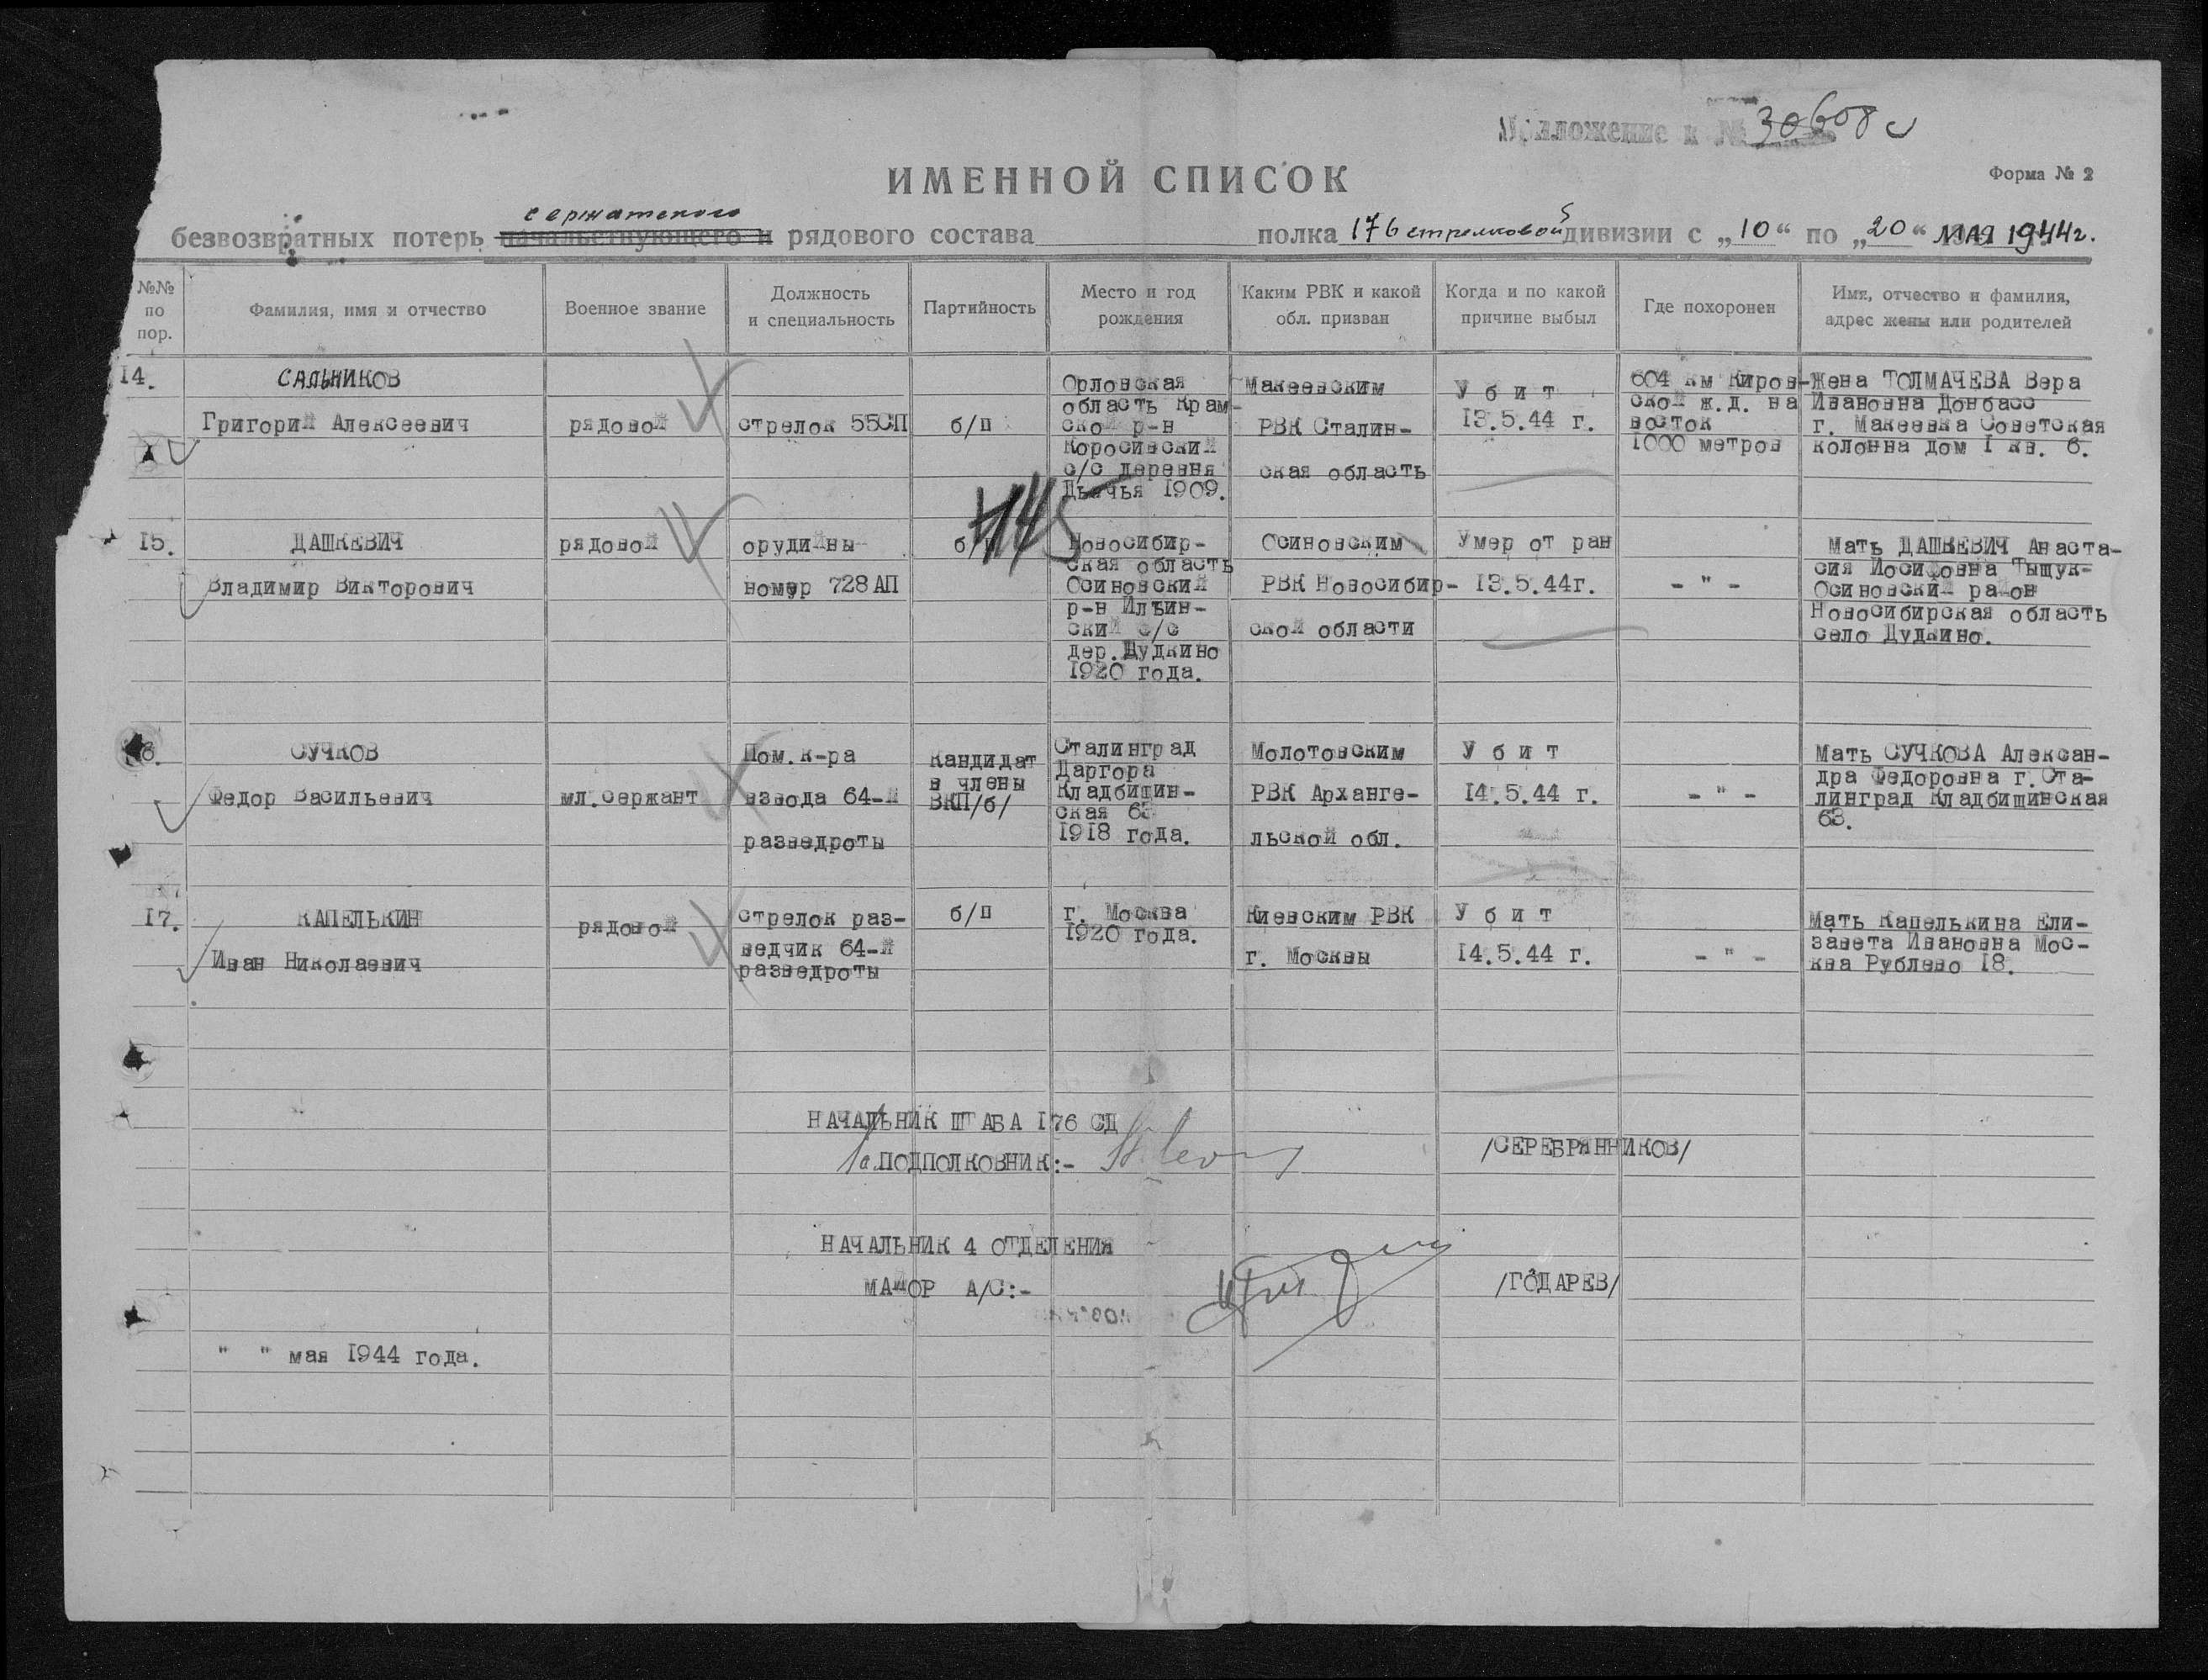 Приложение к № 30608с
ИМЕННОЙ СПИСОК
Форма № 2
сержатского
безвозвратных потерь начальствующего и рядового состава полка 176 стрелковой дивизии с „10“ по „20“ МАЯ 1944г.
№№ по пор.
Фамилия, имя и отчество
Военное звание
Должность и специальность
Партийность
Место и год рождения
Каким РВК и какой обл. призван
Когда и по какой причине выбыл
Где похоронен
Имя, отчество и фамилия, адрес жены или родителей
14.
САЛЬНИКОВ
Григорий Алексеевич
рядовой
стрелок 55СП
б/п
Орловская
область Крам-
ской р-н
Коросивский
с/с деревня
Дьячья 1909.
Макеевским
РВК Сталин-
ская область
У б и т
13.5.44 г.
604 км Киров-
ской ж.д. на
восток
1000 метров
Жена ТОЛМАЧЕВА Вера
Ивановна Донбасс
г. Макеевка Советская
колонна дом I кв. 6.
145
15.
ДАШКЕВИЧ
Владимир Викторович
рядовой
орудийны
номер 728АП
б/п
Новосибир-
ская область
Осиновский
р-н Ильин-
ский с/с
дер. Дудкино
1920 года.
Осиновским
РВК Новосибир-
ской области
Умер от ран
13.5.44г.
- " -
Мать ДАШКЕВИЧ Анаста-
сия Иосифовна Тыщук-
Осиновский район
Новосибирская область
село Дудкино.
6.
СУЧКОВ
Федор Васильевич
мл.сержант
Пом.к-ра
взвода 64-й
разведроты
Кандидат
в члены
ВКП/б/
Сталинград
Даргора
Кладбищин-
ская 63
1918 года.
Молотовским
РВК Арханге-
льской обл.
У б и т
14.5.44 г.
- " -
Мать СУЧКОВА Алексан-
дра Федоровна г.Ста-
линград Кладбищинская
63.
17.
КАПЕЛЬКИН
Иван Николаевич
рядовой
стрелок раз-
ведчик 64-й
разведроты
б/п
г. Москва
1920 года.
Киевским РВК
г. Москвы
У б и т
14.5.44 г.
- " -
Мать Капелькина Ели-
завета Ивановна Мос-
ква Рублево 18.
НАЧАЛЬНИК ШТАБА 176 СД
ПОДПОЛКОВНИК:-
/СЕРЕБРЯННИКОВ/
НАЧАЛЬНИК 4 ОТДЕЛЕНИЯ
МАЙОР А/С:-
/ГОДАРЕВ/
" " мая 1944 года.